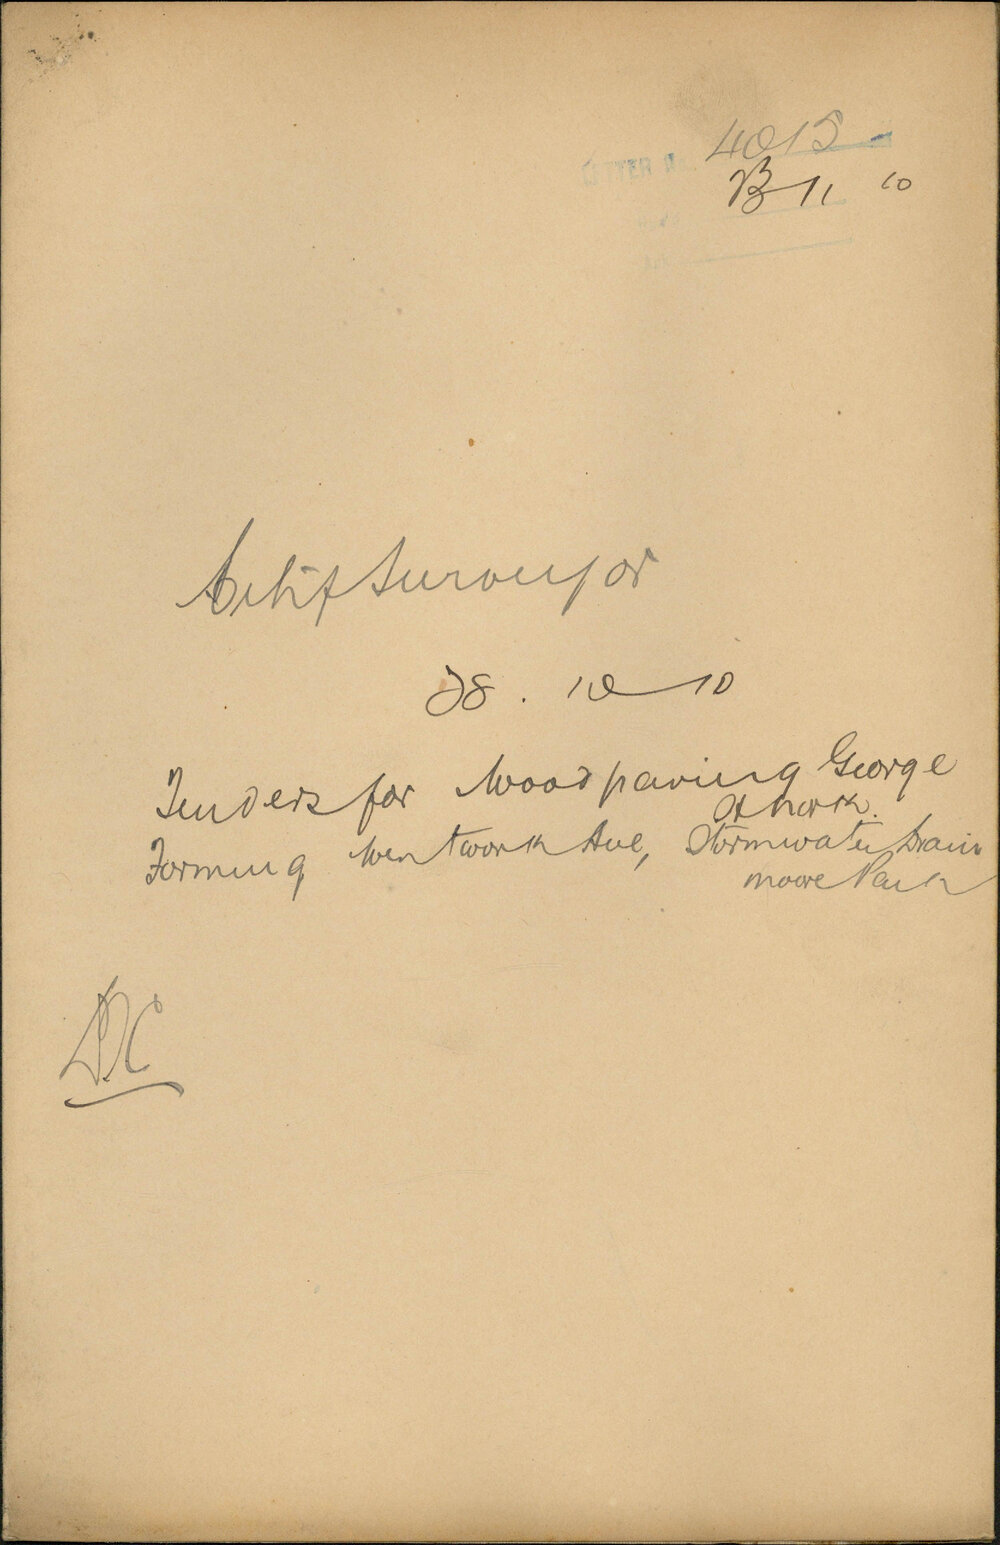 LETTER No. 4015
10
City Surveyor
28. 10 10
Tenders for Woodpaving George
St North.
Forming Wentworth Ave, Stormwater Drain
Moore Park